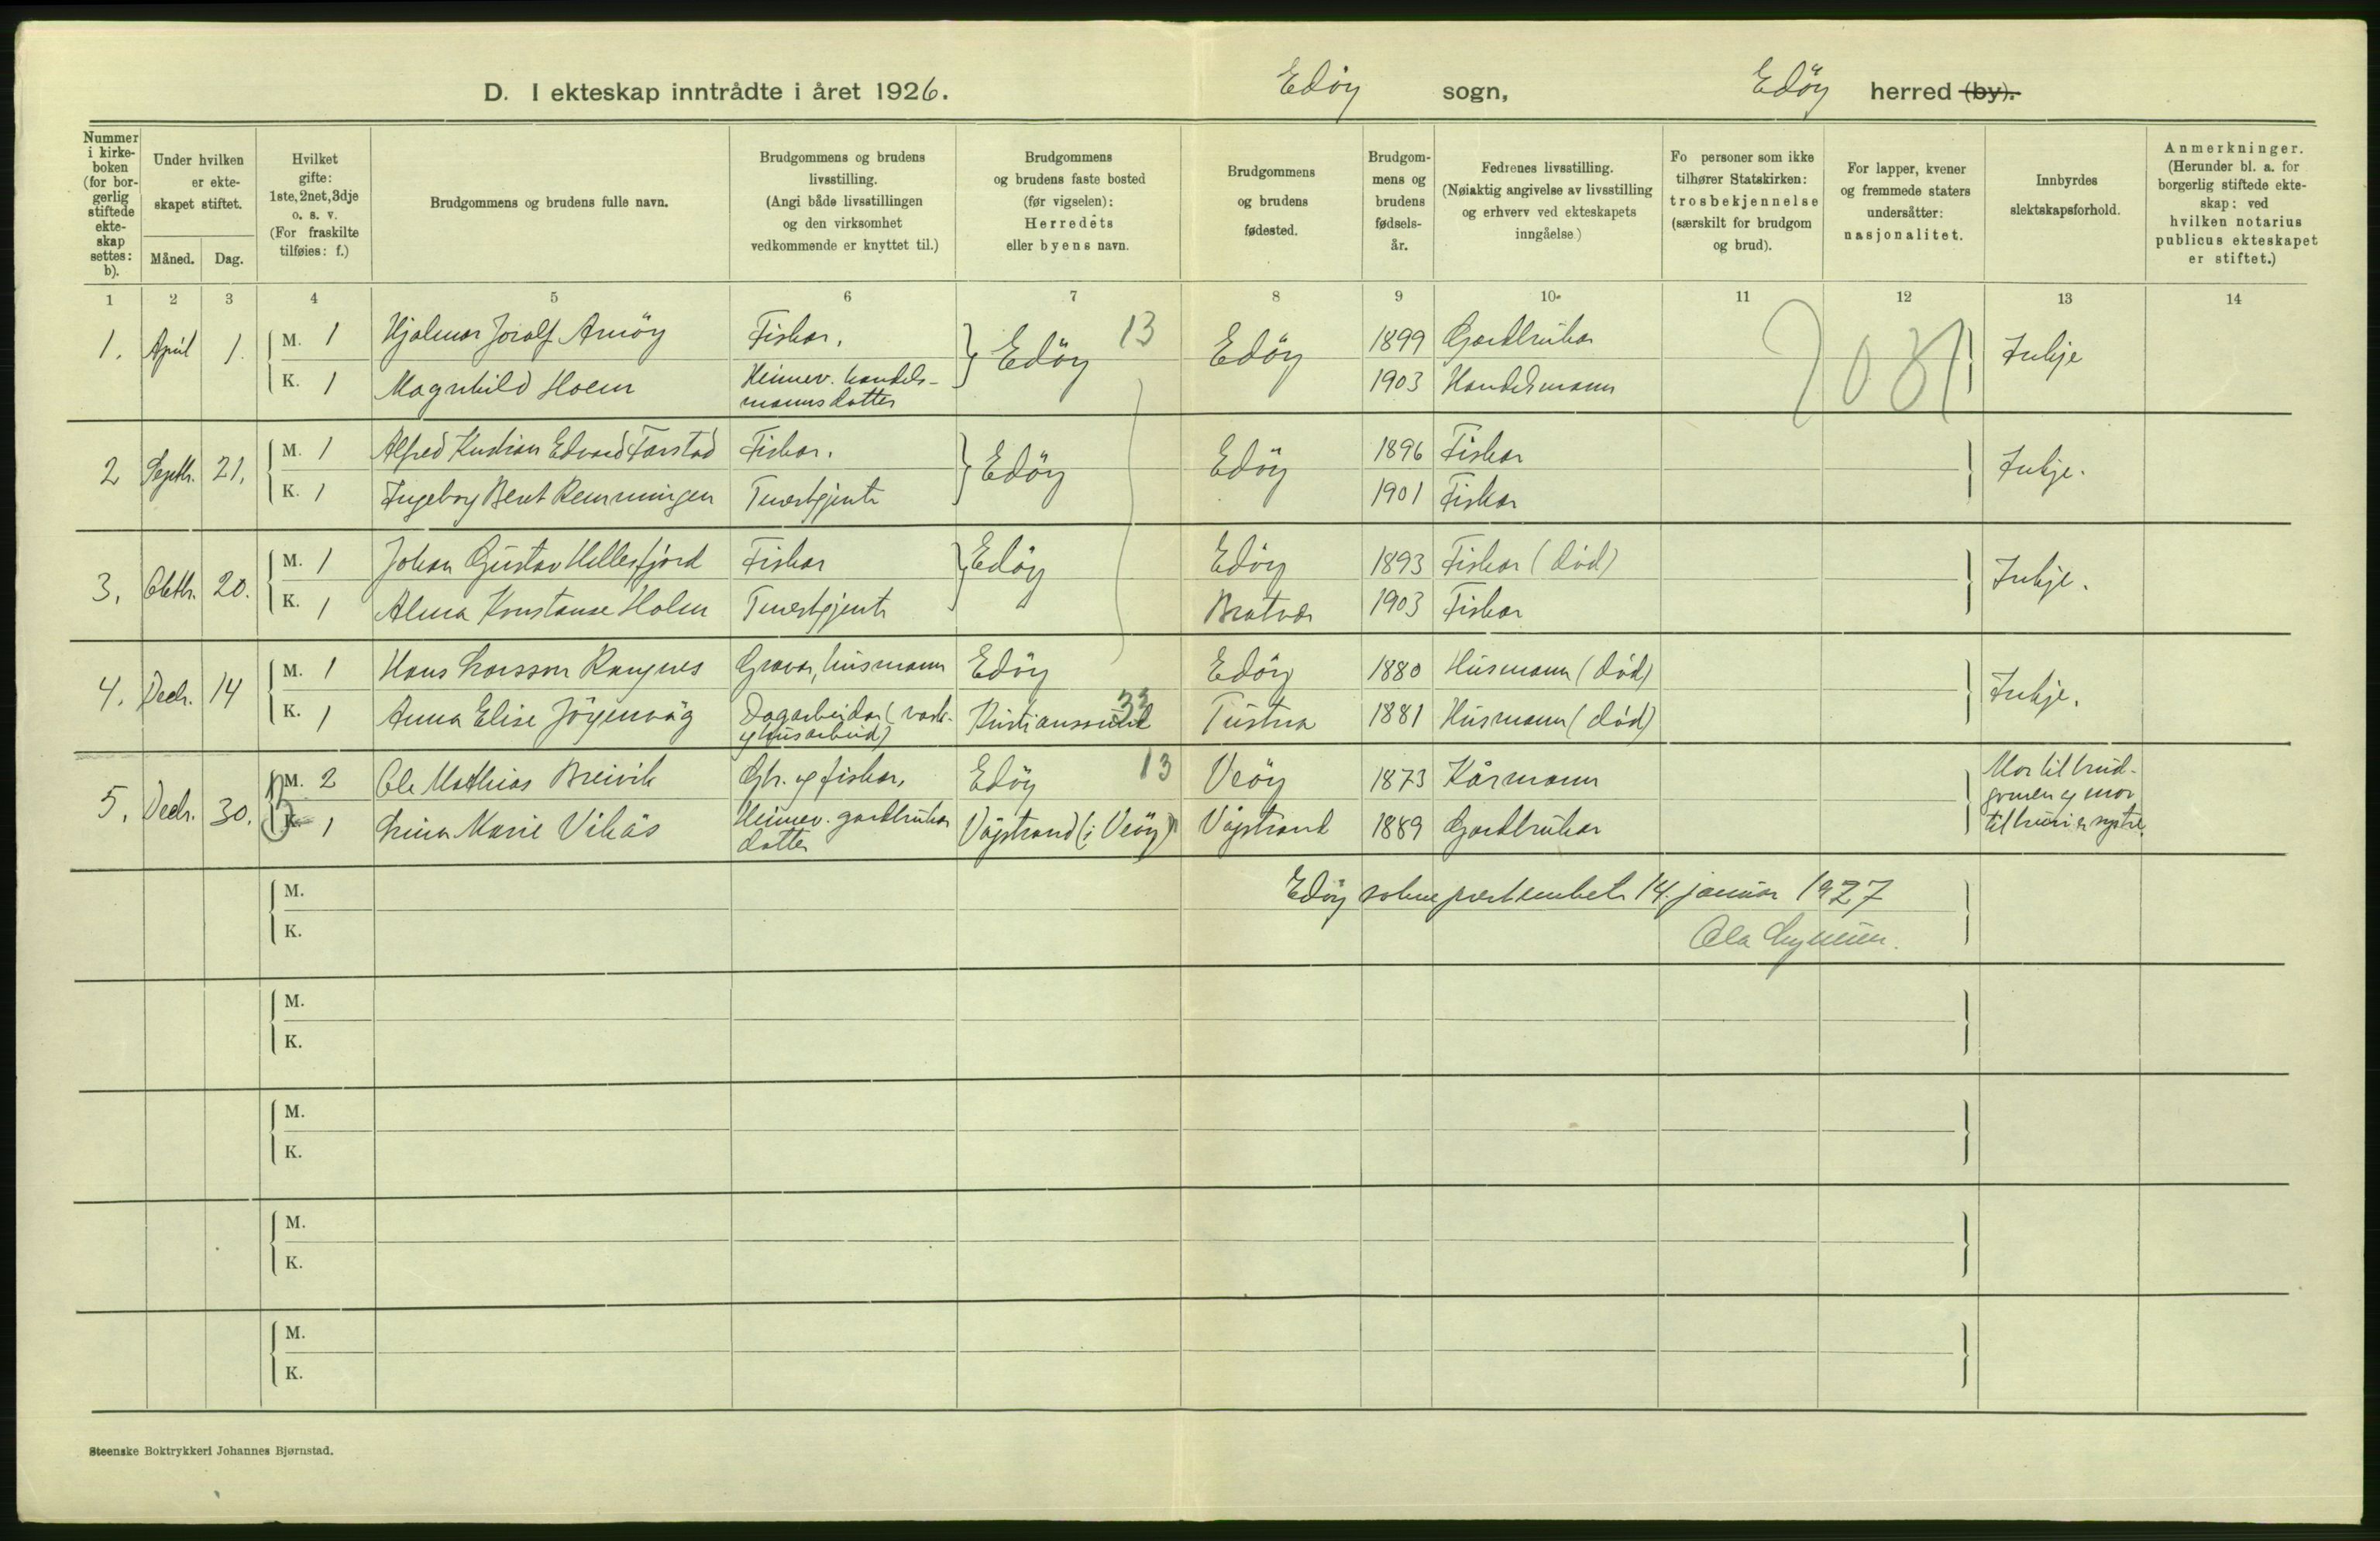 D. I ekteskap inntrådte i året 1926. Edöy sogn, Edöy herred (by).
Nummer i kirkeboken (for borgerlig stiftede ekteskap settes: b).
Under hvilken er ekteskapet stiftet.
Måned. Dag.
Hvilket gifte: 1ste, 2net, 3dje o. s. v. (For fraskilte tilføies: f.)
Brudgommens og brudens fulle navn.
Brudgommens og brudens livsstilling. (Angi både livsstillingen og den virksomhet vedkommende er knyttet til.)
Brudgommens og brudens faste bosted (før vigselen): Herredets eller byens navn.
Brudgommens og brudens fødested.
Brudgommens og brudens fødselsår.
Fedrenes livsstilling. (Nøiaktig angivelse av livsstilling og erhverv ved ekteskapets inngåelse)
Fo personer som ikke tilhører Statskirken: trosbekjennelse (særskilt for brudgom og brud).
For lapper, kvener og fremmede staters undersåtter: nasjonalitet.
Innbyrdes slektskapsforhold.
Anmerkninger. (Herunder bl. a. for borgerlig stiftede ekteskap: ved hvilken notarius publicus ekteskapet er stiftet.)
1 2 3 4 5 6 7 8 9 10 11 12 13 14
1. April 1. M. 1 Hjalmar Joralf Arnöy Fiskar. Edöy 13 Edöy 1899 Gardbrukar Inkje
K. 1 Magnhild Holm Heimev. handelsmannsdotter 1903 Handelsmann
2 Septbr. 21. M. 1 Alfred Kristian Edvard Farstad Fiskar. Edöy Edöy 1896 Fiskar Inkje.
K. 1 Ingeborg Berit Remmingen Tenestgjente 1901 Fiskar
3. Oktbr. 20. M. 1 Johan Gustav Hellesfjord Fiskar Edöy Edöy 1893 Fiskar (död) Inkje.
K. 1 Alma Konstanse Holm Tenestgjente Bratvær 1903 Fiskar
4. Decbr. 14 M. 1 Hans Larsson Rangnes Gravar, husmann Edöy Edöy 1880 Husmann (död) Inkje.
K. 1 Anna Elise Jörgenvåg Dagarbeidar (vask- og husarbeid) Kristianssund 33 Tustna 1881 Husmann (död)
5. Decbr. 30. M. 2 Ole Mathias Breivik Gbr. og fiskar. Edöy 13 Veöy 1873 Kårmann Mor til brudgomen og mor til bruri er systre.
K. 1 Lina Marie Vikås Heimev. gardbrukardotter Vågstrand (i Veöy) Vågstrand 1889 Gardbrukar
Edöy sokneprestembete 14. januar 1927
Ola
M.
K.
M.
K.
M.
K.
M.
K.
M.
K.
Steenske Boktrykkeri Johannes Bjørnstad.